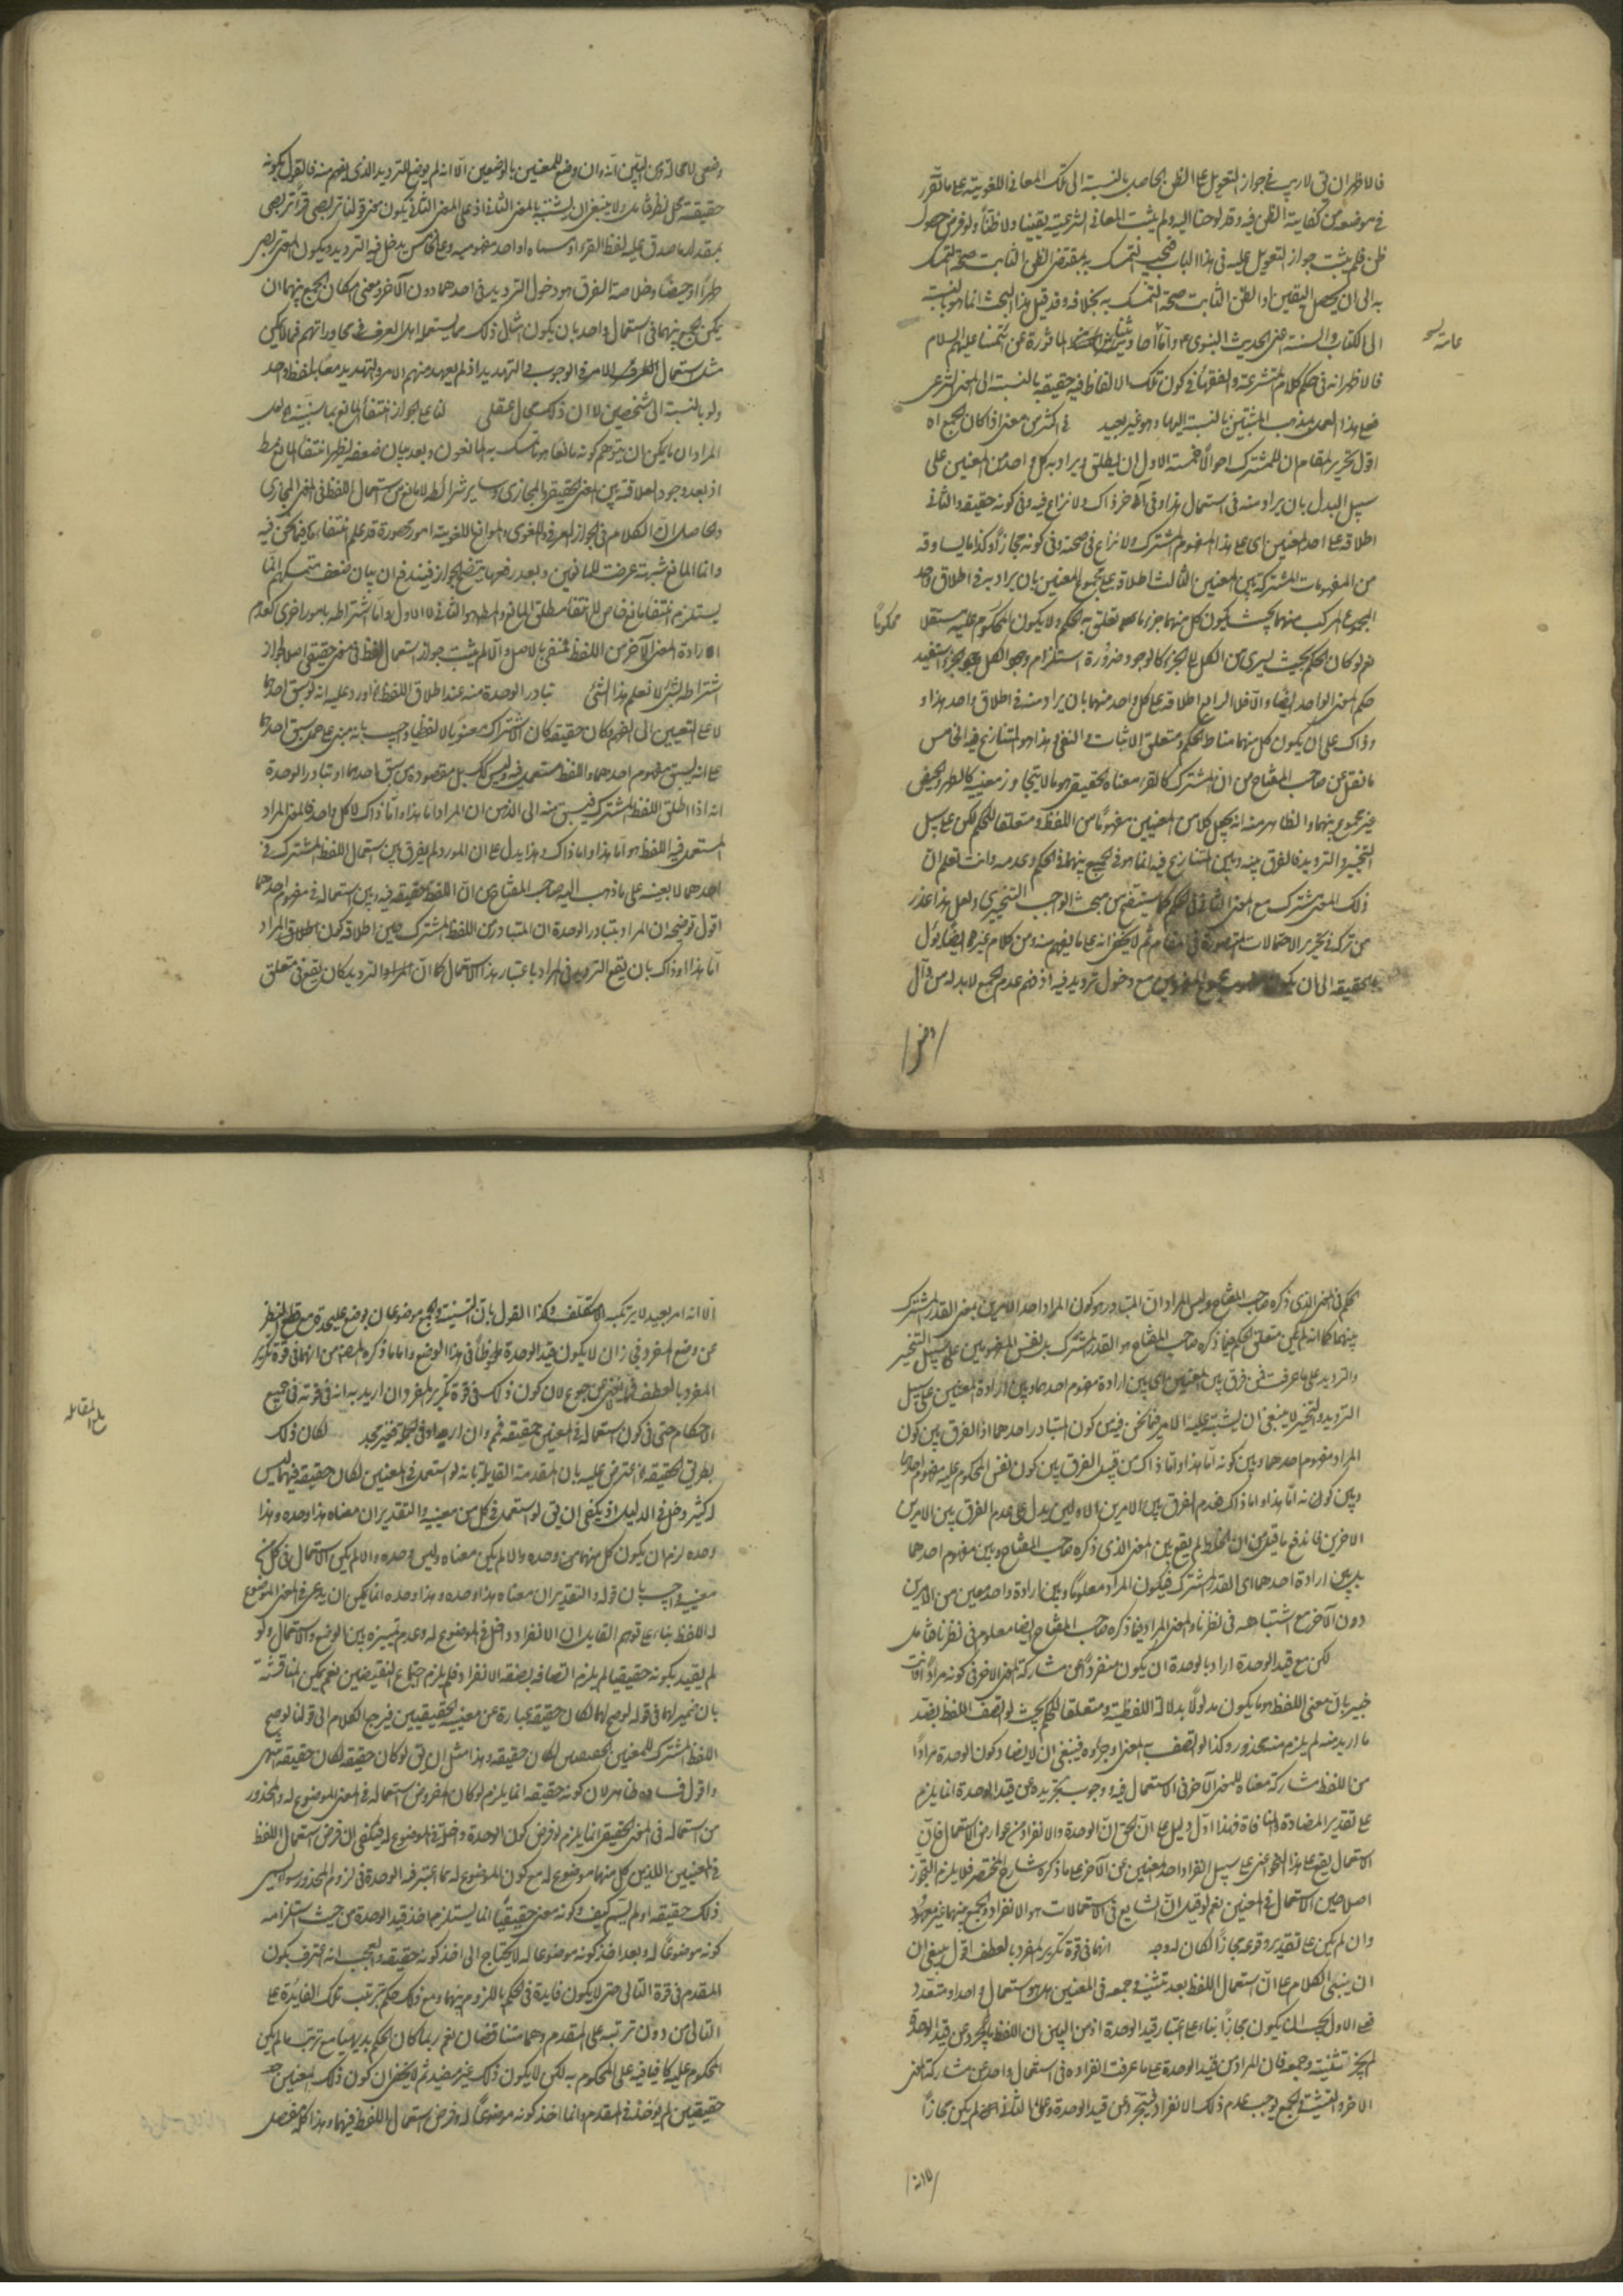 فالاظهران يق لا ريب في جواز التعويل على الظن الحاصل بالنسبة الى تلك المعاني اللغوية على ما تقرر
في موضعه من كفاية الظن فيه وقد لوحنا اليه ولم يثبت المعاني الشرعية يقينا ولا ظنا ولو فرض حصول
ظن فلم يثبت جواز التعويل عليه في هذا الباب فيجب التمسك بمقتضى الظن الثابت صحة التمسك
به الى ان يحصل اليقين او الظن الثابت صحة التمسك به بخلافه وقد قيل هذا البحث انما هو بالنسبة
الى الكتاب والسنة اعنى الحديث النبوى واما احاديثنا الماثورة عن ائمتنا عليهم السلام
فالاظهر انه في حكم كلام المتشرعة والفقهاء في كون تلك الالفاظ فيه حقيقة بالنسبة الى المعنى الشرعى
فعلى هذا العمل بمذهب المثبتين بالنسبة اليها وهو غير بعيد في اكثر من معنى اذا كان الجمع اه
اقول تحرير المقام ان للمشترك احوالا خمسة الاول ان يطلق ويراد به كل واحد من المعنيين على
سبيل البدل بان يراد منه في استعمال هذا وفي آخر ذاك ولا نزاع فيه وفي كونه حقيقة والثاني
اطلاقه على احد المعنيين اى على هذا المفهوم المشترك ولا نزاع في صحته وفي كونه مجازا وكذا ما يساوقه
من المفهومات المشتركة بين المعنيين الثالث اطلاقه على مجموع المعنيين بان يراد به في اطلاق واحد
المجموع المركب منهما بحيث يكون كل منهما جزء ما تعلق به الحكم ولا يكون المحكوم عليه مستقلا
نعم لو كان الحكم بحيث يسرى من الكل الى الجزء كالوجود ضرورة استلزام وجود الكل وجود الجزء استفيد
حكم المعنى الواحد ايضا والا فلا الرابع اطلاقه على كل واحد منهما بان يراد منه في اطلاق واحد هذا و
وذاك على ان يكون كل منهما مناط الحكم ومتعلق الاثبات والنفى وهذا هو المتنازع فيه الخامس
ما نقل عن صاحب المفتاح من ان المشترك كالقرء معناه الحقيقى هو ما لا يتجاوز معنييه كالطهر والحيض
غير مجموع بينهما والظاهر منه انه يجعل كلا من المعنيين مفهوما من اللفظ ومتعلقا للحكم لكن على سبيل
التخيير والترديد فالفرق بينه وبين المتنازع فيه انما هو في الجميع بينهما في الحكم وعدمه وانت تعلم ان
ذلك المعنى مشترك مع المعنى الثاني في الحكم كما يستفيض من مبحث الواجب التخييرى ولعل هذا عذر
من تركه في تحرير الاحتمالات المتصورة في المقام ثم لا يخفى انه على ما يفهم منه ومن كلام غيره ايضا يؤل
الحقيقة الى ان يكون مع دخول ترديد فيه اذ ضم عدم الجمع لا بد له من مآل
وضعى لا محالة ومن البين انه وان وضع للمعنيين بالوضعين الا انه لم يوضع للترديد الذى يفهم منه فالقول بكونه
حقيقة محل نظر فتامل ولا ينبغى ان يشتبه بالمعنى الثاني اذ على المعنى الثاني يكون مخرج قولنا تربصى قرءا تربصى
بمقدار ما صدق عليه لفظ القرء او مسماه او احد مفهوميه وعلى الخامس يدخل فيه الترديد ويكون المعنى تربصى
طهرا او حيضا وخلاصة الفرق هو دخول الترديد في احدهما دون الآخر ومعنى امكان الجمع بينهما ان
يمكن الجمع بينهما في استعمال واحد بان يكون امثال ذلك مما يستعمله اهل العرف في محاوراتهم فما لا يمكن
مثل استعمال الامر في الوجوب والتهديد اذ لم يعهد منهم الامر والتهديد معا بلفظ واحد
ولو بالنسبة الى شخصين لا ان ذلك محال عقلى لنا على الجواز انتفاء المانع بما سنبينه لعل
المراد ان ما يمكن ان يتوهم كونه مانعا هو ما تمسك به المانعون وبعد بيان ضعفه يظهر انتفاء المانع
اذ بعد وجود العلاقة بين المعنى الحقيقى والمجازى وساير شرائطه لا مانع من استعمال اللفظ في المعنى المجازى
والحاصل ان الكلام في الجواز العرفى واللغوى والموانع اللغوية امور محصورة قد علم انتفاءها فيما نحن فيه
وانما المانع شبهة عرضت للمانعين وبعد رفعها يتضح الجواز فيندفع ان بيان ضعف متمسكهم انما
يستلزم انتفاء مانع خاص لا انتفاء مطلق المانع والمطلوب هو الثاني لا الاول واما اشتراطه بامور اخرى كعدم
ارادة المعنى الآخر من اللفظ فمنفى بالاصل والا لم يثبت جواز استعمال لفظ في معنى حقيقى اصلا لجواز
اشتراطه بشئ لا نعلم هذا الشئ تبادر الوحدة منه عند اطلاق اللفظ اورد عليه انه لو سبق احدهما
لا على التعيين الى الفهم وكان حقيقة كان الاشتراك معنويا لا لفظيا واجيب بانه مبنى على حمل سبق احدهما
على انه يسبق مفهوم احدهما واللفظ مستعمل فيه وليس كك بل مقصوده من سبق احدهما او تبادر الوحدة
انه اذا اطلق اللفظ المشترك فيسبق منه الى الذهن ان المراد اما هذا واما ذاك لا كل واحد فالمعنى المراد
المستعمل فيه اللفظ هو اما هذا واما ذاك وهذا يدل على ان المورد لم يفرق بين استعمال اللفظ المشترك في
احدهما لا بعينه على ما ذهب اليه صاحب المفتاح من ان اللفظ حقيقة فيه وبين استعماله في مفهوم احدهما
اقول توضيحه ان المراد بتبادر الوحدة ان المتبادر من اللفظ المشترك حين اطلاقه كون المراد
اما هذا او ذاك بان يقع الترديد في المراد باعتبار هذا الاستعمال كما ان الترديد كان يقع في متعلق
الحكم في المعنى الذى ذكره صاحب المفتاح وليس المراد ان المتبادر هو كون المراد احد الامرين بمعنى القدر المشترك
بينهما كما انه لم يكن متعلق الحكم فيما ذكره صاحب المفتاح هو القدر المشترك بل نفس المفهومين على سبيل التخيير
والترديد على ما عرفت فمن فرق بين المعنيين اى بين ارادة مفهوم احدهما وبين ارادة المعنيين على سبيل
الترديد والتخيير لا ينبغى ان يشتبه عليه الامر فيما نحن فيه من كون المتبادر احدهما اذ الفرق بين كون
المراد مفهوم احدهما وبين كونه اما هذا واما ذاك من قبيل الفرق بين كون نفس المحكوم عليه مفهوم احدهما
وبين كونه اما هذا واما ذاك فعدم الفرق بين الامرين الاولين يدل على عدم الفرق بين الامرين
الاخرين فاندفع ما قيل من ان الخلط لم يقع بين المعنى الذى ذكره صاحب المفتاح وبين مفهوم احدهما
بل بين ارادة احدهما اى القدر المشترك فيكون المراد معلوما وبين ارادة واحد معين من الامرين
دون الآخر مع اشتباهه في نظرنا والمعنى المراد فيما ذكره صاحب المفتاح ايضا معلوم في نظرنا فتامل
لكن مع قيد الوحدة اراد بالوحدة ان يكون منفردا عن مشاركة المعنى الآخر في كونه مرادا وانت
خبير بان معنى اللفظ هو ما يكون مدلولا بدلالة اللفظية ومتعلقا للحكم بحيث لو اتصف اللفظ بضد
ما اريد منه لم يلزم منه محذور وكذا لو اتصف به المعنى وجزءه فينبغى ان لا يضاد كون الوحدة مرادا
من اللفظ مشاركة معناه للمعنى الآخر في الاستعمال فيه ووجوب تجريده عن قيد الوحدة انما يلزم
على تقدير المضادة والمنافاة فهذا اول دليل على ان الحق ان الوحدة والانفراد من عوارض الاستعمال فان
الاستعمال يقع على هذا النحو اعنى على سبيل انفراد احد المعنيين عن الآخر على ما ذكره شارح المختصر فلا يلزم التجوز
اصلا حين الاستعمال في المعنيين نعم لو قيل ان الشايع في الاستعمالات هو الانفراد والجمع بينهما غير معهود
وان لم يكن على تقدير وقوعه مجازا لكان له وجه انهما في قوة تكرير المفرد بالعطف اقول ينبغى ان
ان يبنى الكلام على ان استعمال اللفظ بعد تثنيته وجمعه في المعنيين هل هو استعمال واحد او متعدد
فعلى الاول يجب ان يكون مجازا بناء على اعتبار قيد الوحدة اذ من البين ان اللفظ ما لم يجرد عن قيد الوحدة
لم يجز تثنيته وجمعه فان المراد من قيد الوحدة على ما عرفت انفراده في استعمال واحد عن مشاركة المعنى
الآخر والتثنية والجمع يوجب عدم ذلك الانفراد فيتجرد عن قيد الوحدة وعلى الثاني لم يكن مجازا
الا انه امر بعيد لا يرتكبه الا متكلف وكذا القول بان التثنية والجمع موضوعان بوضع عليحدة مع قطع النظر
عن وضع المفرد في زان لا يكون قيد الوحدة ملحوظا في هذا الوضع واما ما ذكره المصنف من انهما في قوة تكرير
المفرد بالعطف لان كون ذلك في قوة تكرير المفرد ان اريد به انه في قوته في جميع
الاحكام حتى في كون استعماله في المعنيين حقيقة فمم وان اريد في الجملة فغير مجد لكان ذلك
بطريق الحقيقة اعترض عليه بان المقدمة القايلة بانه لو استعمل في المعنيين لكان حقيقة فيهما ليس
له كثير دخل في الدليل اذ يكفى ان يق لو استعمل في كل من معنييه والتقدير ان معناه هذا وحده وهذا
وحده لزم ان يكون كل منهما وحده والا لم يكن معناه وليس وحده والا لم يكن الاستعمال في كل من
معنييه واجيب بان قوله والتقدير ان معناه هذا وحده وهذا وحده انما يمكن ان يدعى في المعنى الموضوع
له اللفظ بناء على توهم القايل ان الانفراد داخل في الموضوع له وعدم تمييزه بين الوضع والاستعمال ولو
لم يقيد بكونه حقيقيا لم يلزم اتصافه بصفة الانفراد فلم يلزم اجتماع النقيضين نعم يمكن المناقشة
بان ضمير لهما في قوله لو صح لهما لكان حقيقة عبارة عن معنييه الحقيقيين فيرجع الكلام الى قولنا لو صح
اللفظ المشترك للمعنيين الحقيقيين لكان حقيقة وهذا مثل ان يق لو كان حقيقة لكان حقيقة انتهى
واقول فساده ظاهر لان كونه حقيقة انما يلزم لو كان المفروض استعماله في المعنى الموضوع له والمحذور
من استعماله في المعنى الحقيقى انما يلزم لو فرض كون الوحدة داخلة في الموضوع له فيكفى ان فرض استعمال اللفظ
في المعنيين اللذين كل منهما موضوع له مع كون الموضوع له مما اعتبر فيه الوحدة في لزوم المحذور سواء سمى
ذلك حقيقة او لم يسم كيف وكونه معنى حقيقيا انما يستلزم ما اخذ قيد الوحدة من حيث استلزامه
كونه موضوعا له وبعد اخذ كونه موضوعا له لا يحتاج الى اخذ كونه حقيقة والعجب انه اعترف بكون
المقدم في قوة التالى حتى لا يكون فايدة في الحكم باللزوم بينهما ومع ذلك حكم بترتب تلك الفايدة على
التالى من دون ترتبه على المقدم وهما متناقضان نعم ربما كان الحكم بديهيا مع ترتب ما لم يكن
المحكوم عليه كافيا فيه على المحكوم به لكن لا يكون ذلك غير مفيد ثم لا يخفى ان كون ذلك المعنيين
حقيقيين لم يؤخذ في المقدم وانما اخذ كونه موضوعا له وفرض استعمال اللفظ فيهما وهذا كله مفصل